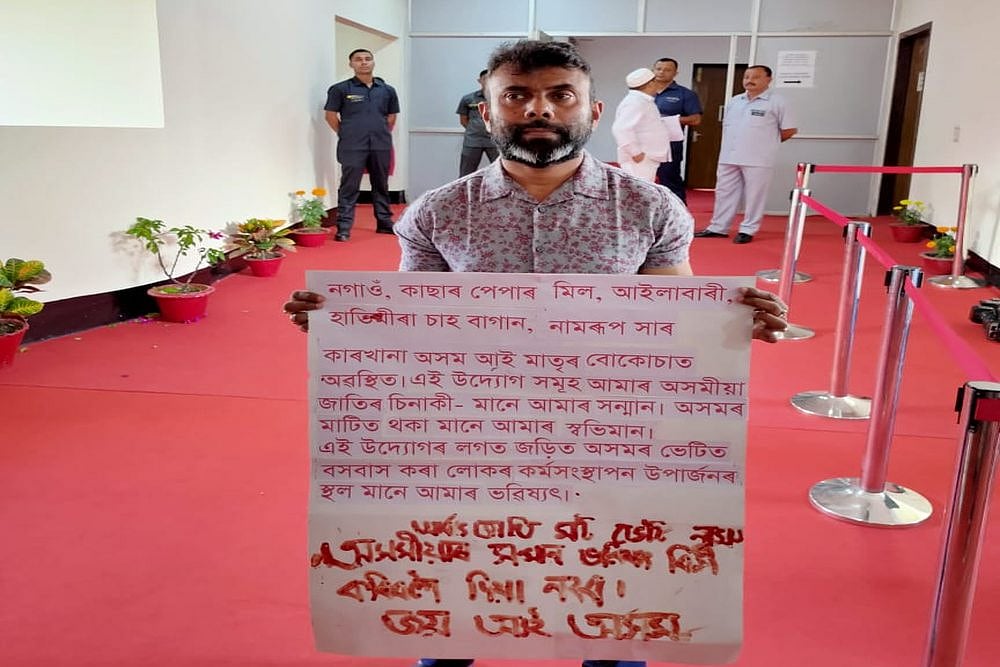 নগাওঁ, কাছাৰ পেপাৰ মিল, আইলাবাৰী,
হাতিমীৰা চাহ বাগান, নামৰূপ সাৰ
কাৰখানা অসম আই মাতৃৰ বোকোচাত
অৱস্থিত। এই উৰ্দ্যোগ সমূহ আমাৰ অসমীয়া
জাতিৰ চিনাকী- মানে আমাৰ সন্মান। অসমৰ
মাটিত থকা মানে আমাৰ স্বভিমান।
এই উদ্যোগৰ লগত জড়িত অসমৰ ভেটিত
বসবাস কৰা লোকৰ কৰ্মসংস্থাপন উপাৰ্জনৰ
স্থল মানে আমাৰ ভৱিষ্যৎ।
জাতি মাটি ভেটি
অসমীয়াৰ সন্মান
দিয়া নহব।
জয় আই অসম